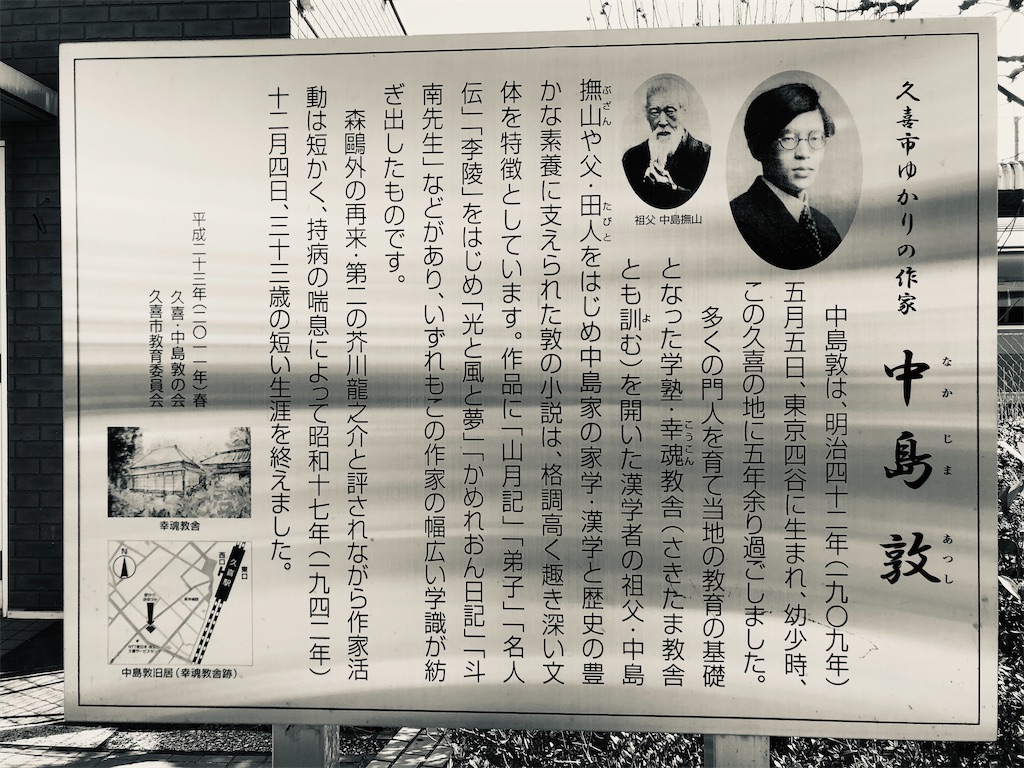 久喜市ゆかりの作家
中島敦
なか
じま
あつし
中島敦は、明治四十二年(一九〇九年)
五月五日、東京四谷に生まれ、幼少時、
この久喜の地に五年余り過ごしました。
多くの門人を育て当地の教育の基礎
となった学塾・幸魂教舎(さきたま教舎
こうこん
とも訓む)を開いた漢学者の祖父・中島
よ
撫山や父・田人をはじめ中島家の家学・漢学と歴史の豊
ぶざん
たびと
かな素養に支えられた敦の小説は、格調高く趣き深い文
体を特徴としています。作品に「山月記」「弟子」「名人
伝」「李陵」をはじめ「光と風と夢」「かめれおん日記」「斗
南先生」などがあり、いずれもこの作家の幅広い学識が紡
ぎ出したものです。
森鷗外の再来・第二の芥川龍之介と評されながら作家活
動は短かく、持病の喘息によって昭和十七年(一九四二年)
十二月四日、三十三歳の短い生涯を終えました。
平成二十三年(二〇一一年)春
久喜・中島敦の会
久喜市教育委員会
祖父 中島撫山
幸魂教舎
N
西口
東口
久喜駅
中島敦旧居(幸魂教舎跡)